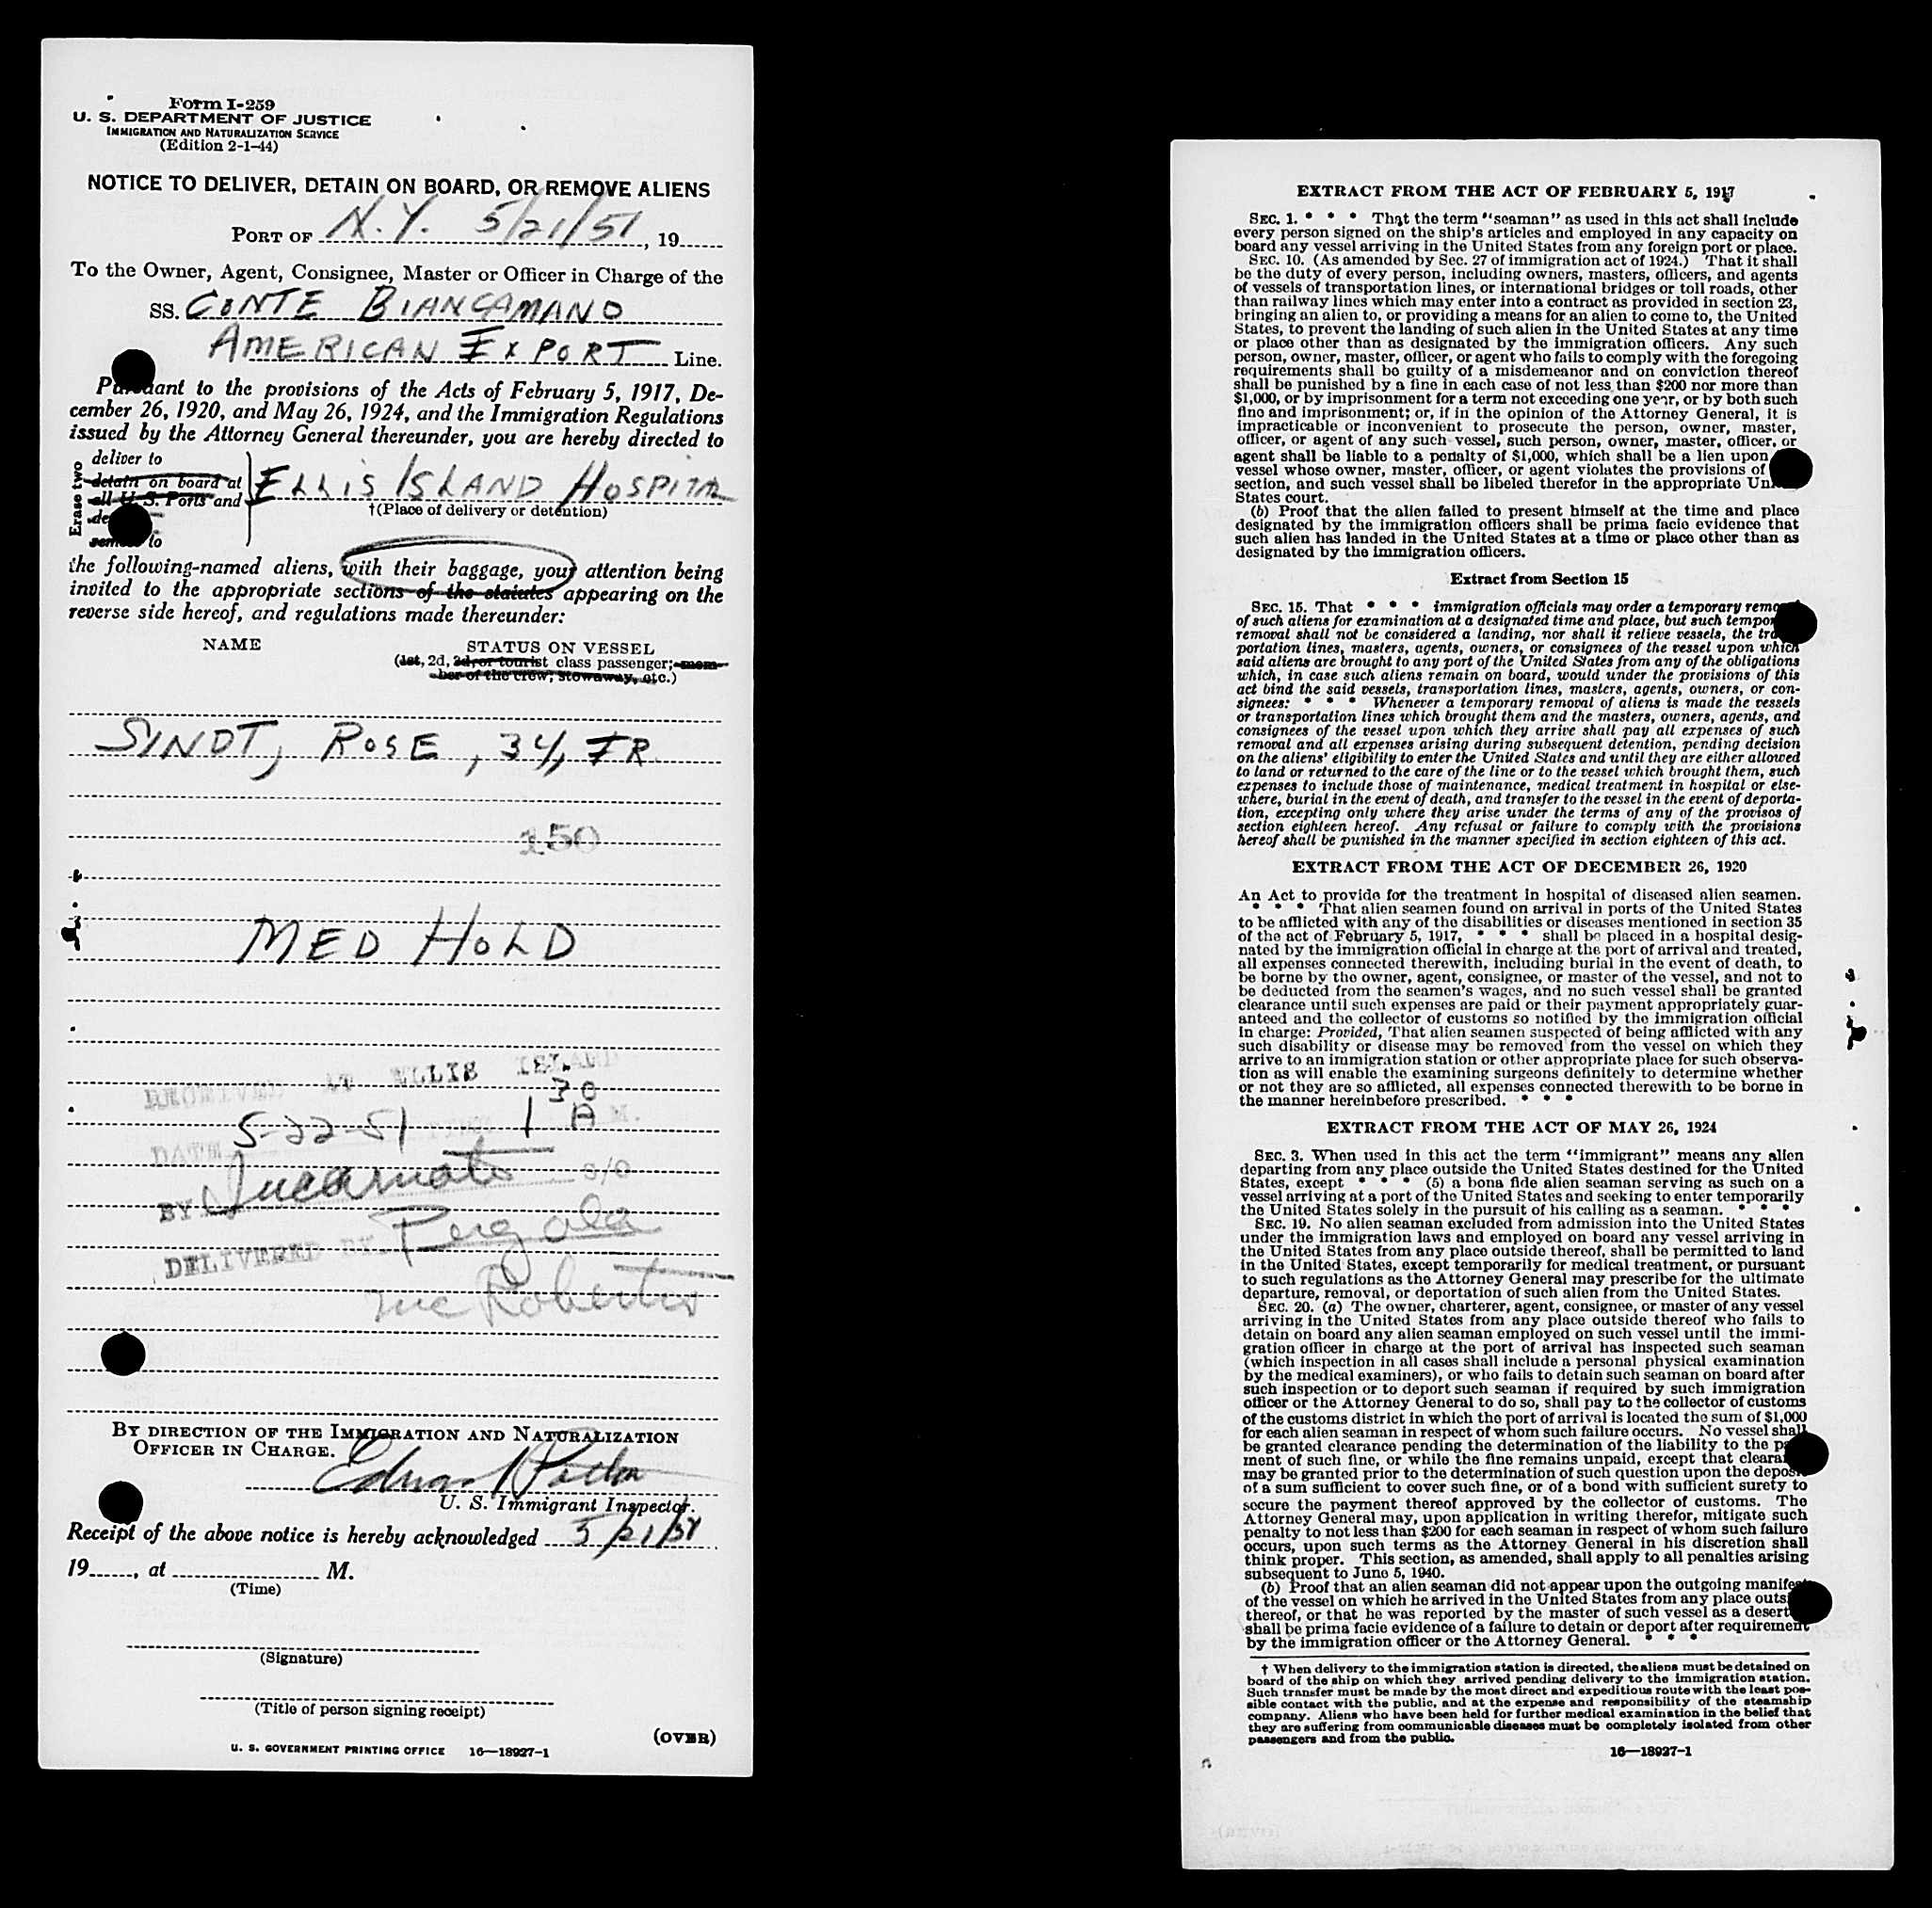 Form I-259
U. S. DEPARTMENT OF JUSTICE
IMMIGRATION AND NATURALIZATION SERVICE
(Edition 2-1-44)
NOTICE TO DELIVER, DETAIN ON BOARD, OR REMOVE ALIENS
PORT OF N.Y. 5/21/51, 19
To the Owner, Agent, Consignee, Master or Officer in Charge of the
SS. CONTE BIANCAMANO
AMERICAN EXPORT Line.
Pursuant to the provisions of the Acts of February 5, 1917, De-
cember 26, 1920, and May 26, 1924, and the Immigration Regulations
issued by the Attorney General thereunder, you are hereby directed to
Erase two
deliver to
detain on board at
all U. S. Ports and
remove to
ELLIS ISLAND HOSPITAL
†(Place of delivery or detention)
the following-named aliens, with their baggage, your attention being
invited to the appropriate sections of the statutes appearing on the
reverse side hereof, and regulations made thereunder:
NAME
STATUS ON VESSEL
(1st, 2d, 3d, or tourist class passenger; mem-
ber of the crew, stowaway, etc.)
SINDT, ROSE, 34, FR
150
MED HOLD
RECEIVED AT ELLIS ISLAND
DATE 5-22-51 1 30 A M.
BY Incarnato S/O
DELIVERED BY Pergola
McRoberts
BY DIRECTION OF THE IMMIGRATION AND NATURALIZATION
OFFICER IN CHARGE.
U. S. Immigrant Inspector.
Receipt of the above notice is hereby acknowledged 5/21/51
19, at M.
(Time)
(Signature)
(Title of person signing receipt)
(OVER)
U. S. GOVERNMENT PRINTING OFFICE 16—18927-1
EXTRACT FROM THE ACT OF FEBRUARY 5, 1917
SEC. 1. * * * That the term "seaman" as used in this act shall include
every person signed on the ship's articles and employed in any capacity on
board any vessel arriving in the United States from any foreign port or place.
SEC. 10. (As amended by Sec. 27 of immigration act of 1924.) That it shall
be the duty of every person, including owners, masters, officers, and agents
of vessels of transportation lines, or international bridges or toll roads, other
than railway lines which may enter into a contract as provided in section 23,
bringing an alien to, or providing a means for an alien to come to, the United
States, to prevent the landing of such alien in the United States at any time
or place other than as designated by the immigration officers. Any such
person, owner, master, officer, or agent who fails to comply with the foregoing
requirements shall be guilty of a misdemeanor and on conviction thereof
shall be punished by a fine in each case of not less than $200 nor more than
$1,000, or by imprisonment for a term not exceeding one year, or by both such
fine and imprisonment; or, if in the opinion of the Attorney General, it is
impracticable or inconvenient to prosecute the person, owner, master,
officer, or agent of any such vessel, such person, owner, master, officer, or
agent shall be liable to a penalty of $1,000, which shall be a lien upon
vessel whose owner, master, officer, or agent violates the provisions of
section, and such vessel shall be libeled therefor in the appropriate United
States court.
(b) Proof that the alien failed to present himself at the time and place
designated by the immigration officers shall be prima facie evidence that
such alien has landed in the United States at a time or place other than as
designated by the immigration officers.
Extract from Section 15
SEC. 15. That * * * immigration officials may order a temporary removal
of such aliens for examination at a designated time and place, but such temporary
removal shall not be considered a landing, nor shall it relieve vessels, the trans-
portation lines, masters, agents, owners, or consignees of the vessel upon which
said aliens are brought to any port of the United States from any of the obligations
which, in case such aliens remain on board, would under the provisions of this
act bind the said vessels, transportation lines, masters, agents, owners, or con-
signees: * * * Whenever a temporary removal of aliens is made the vessels
or transportation lines which brought them and the masters, owners, agents, and
consignees of the vessel upon which they arrive shall pay all expenses of such
removal and all expenses arising during subsequent detention, pending decision
on the aliens' eligibility to enter the United States and until they are either allowed
to land or returned to the care of the line or to the vessel which brought them, such
expenses to include those of maintenance, medical treatment in hospital or else-
where, burial in the event of death, and transfer to the vessel in the event of deporta-
tion, excepting only where they arise under the terms of any of the provisos of
section eighteen hereof. Any refusal or failure to comply with the provisions
hereof shall be punished in the manner specified in section eighteen of this act.
EXTRACT FROM THE ACT OF DECEMBER 26, 1920
An Act to provide for the treatment in hospital of diseased alien seamen.
* * * That alien seamen found on arrival in ports of the United States
to be afflicted with any of the disabilities or diseases mentioned in section 35
of the act of February 5, 1917, * * * shall be placed in a hospital desig-
nated by the immigration official in charge at the port of arrival and treated,
all expenses connected therewith, including burial in the event of death, to
be borne by the owner, agent, consignee, or master of the vessel, and not to
be deducted from the seamen's wages, and no such vessel shall be granted
clearance until such expenses are paid or their payment appropriately guar-
anteed and the collector of customs so notified by the immigration official
in charge: Provided, That alien seamen suspected of being afflicted with any
such disability or disease may be removed from the vessel on which they
arrive to an immigration station or other appropriate place for such observa-
tion as will enable the examining surgeons definitely to determine whether
or not they are so afflicted, all expenses connected therewith to be borne in
the manner hereinbefore prescribed. * * *
EXTRACT FROM THE ACT OF MAY 26, 1924
SEC. 3. When used in this act the term "immigrant" means any alien
departing from any place outside the United States destined for the United
States, except * * * (5) a bona fide alien seaman serving as such on a
vessel arriving at a port of the United States and seeking to enter temporarily
the United States solely in the pursuit of his calling as a seaman. * * *
SEC. 19. No alien seaman excluded from admission into the United States
under the immigration laws and employed on board any vessel arriving in
the United States from any place outside thereof, shall be permitted to land
in the United States, except temporarily for medical treatment, or pursuant
to such regulations as the Attorney General may prescribe for the ultimate
departure, removal, or deportation of such alien from the United States.
SEC. 20. (a) The owner, charterer, agent, consignee, or master of any vessel
arriving in the United States from any place outside thereof who fails to
detain on board any alien seaman employed on such vessel until the immi-
gration officer in charge at the port of arrival has inspected such seaman
(which inspection in all cases shall include a personal physical examination
by the medical examiners), or who fails to detain such seaman on board after
such inspection or to deport such seaman if required by such immigration
officer or the Attorney General to do so, shall pay to the collector of customs
of the customs district in which the port of arrival is located the sum of $1,000
for each alien seaman in respect of whom such failure occurs. No vessel shall
be granted clearance pending the determination of the liability to the pay-
ment of such fine, or while the fine remains unpaid, except that clearance
may be granted prior to the determination of such question upon the deposit
of a sum sufficient to cover such fine, or of a bond with sufficient surety to
secure the payment thereof approved by the collector of customs. The
Attorney General may, upon application in writing therefor, mitigate such
penalty to not less than $200 for each seaman in respect of whom such failure
occurs, upon such terms as the Attorney General in his discretion shall
think proper. This section, as amended, shall apply to all penalties arising
subsequent to June 5, 1940.
(b) Proof that an alien seaman did not appear upon the outgoing manifest
of the vessel on which he arrived in the United States from any place outside
thereof, or that he was reported by the master of such vessel as a deserter,
shall be prima facie evidence of a failure to detain or deport after requirement
by the immigration officer or the Attorney General. * * *
† When delivery to the immigration station is directed, the aliens must be detained on
board of the ship on which they arrived pending delivery to the immigration station.
Such transfer must be made by the most direct and expeditious route with the least pos-
sible contact with the public, and at the expense and responsibility of the steamship
company. Aliens who have been held for further medical examination in the belief that
they are suffering from communicable diseases must be completely isolated from other
passengers and from the public.
16—18927-1